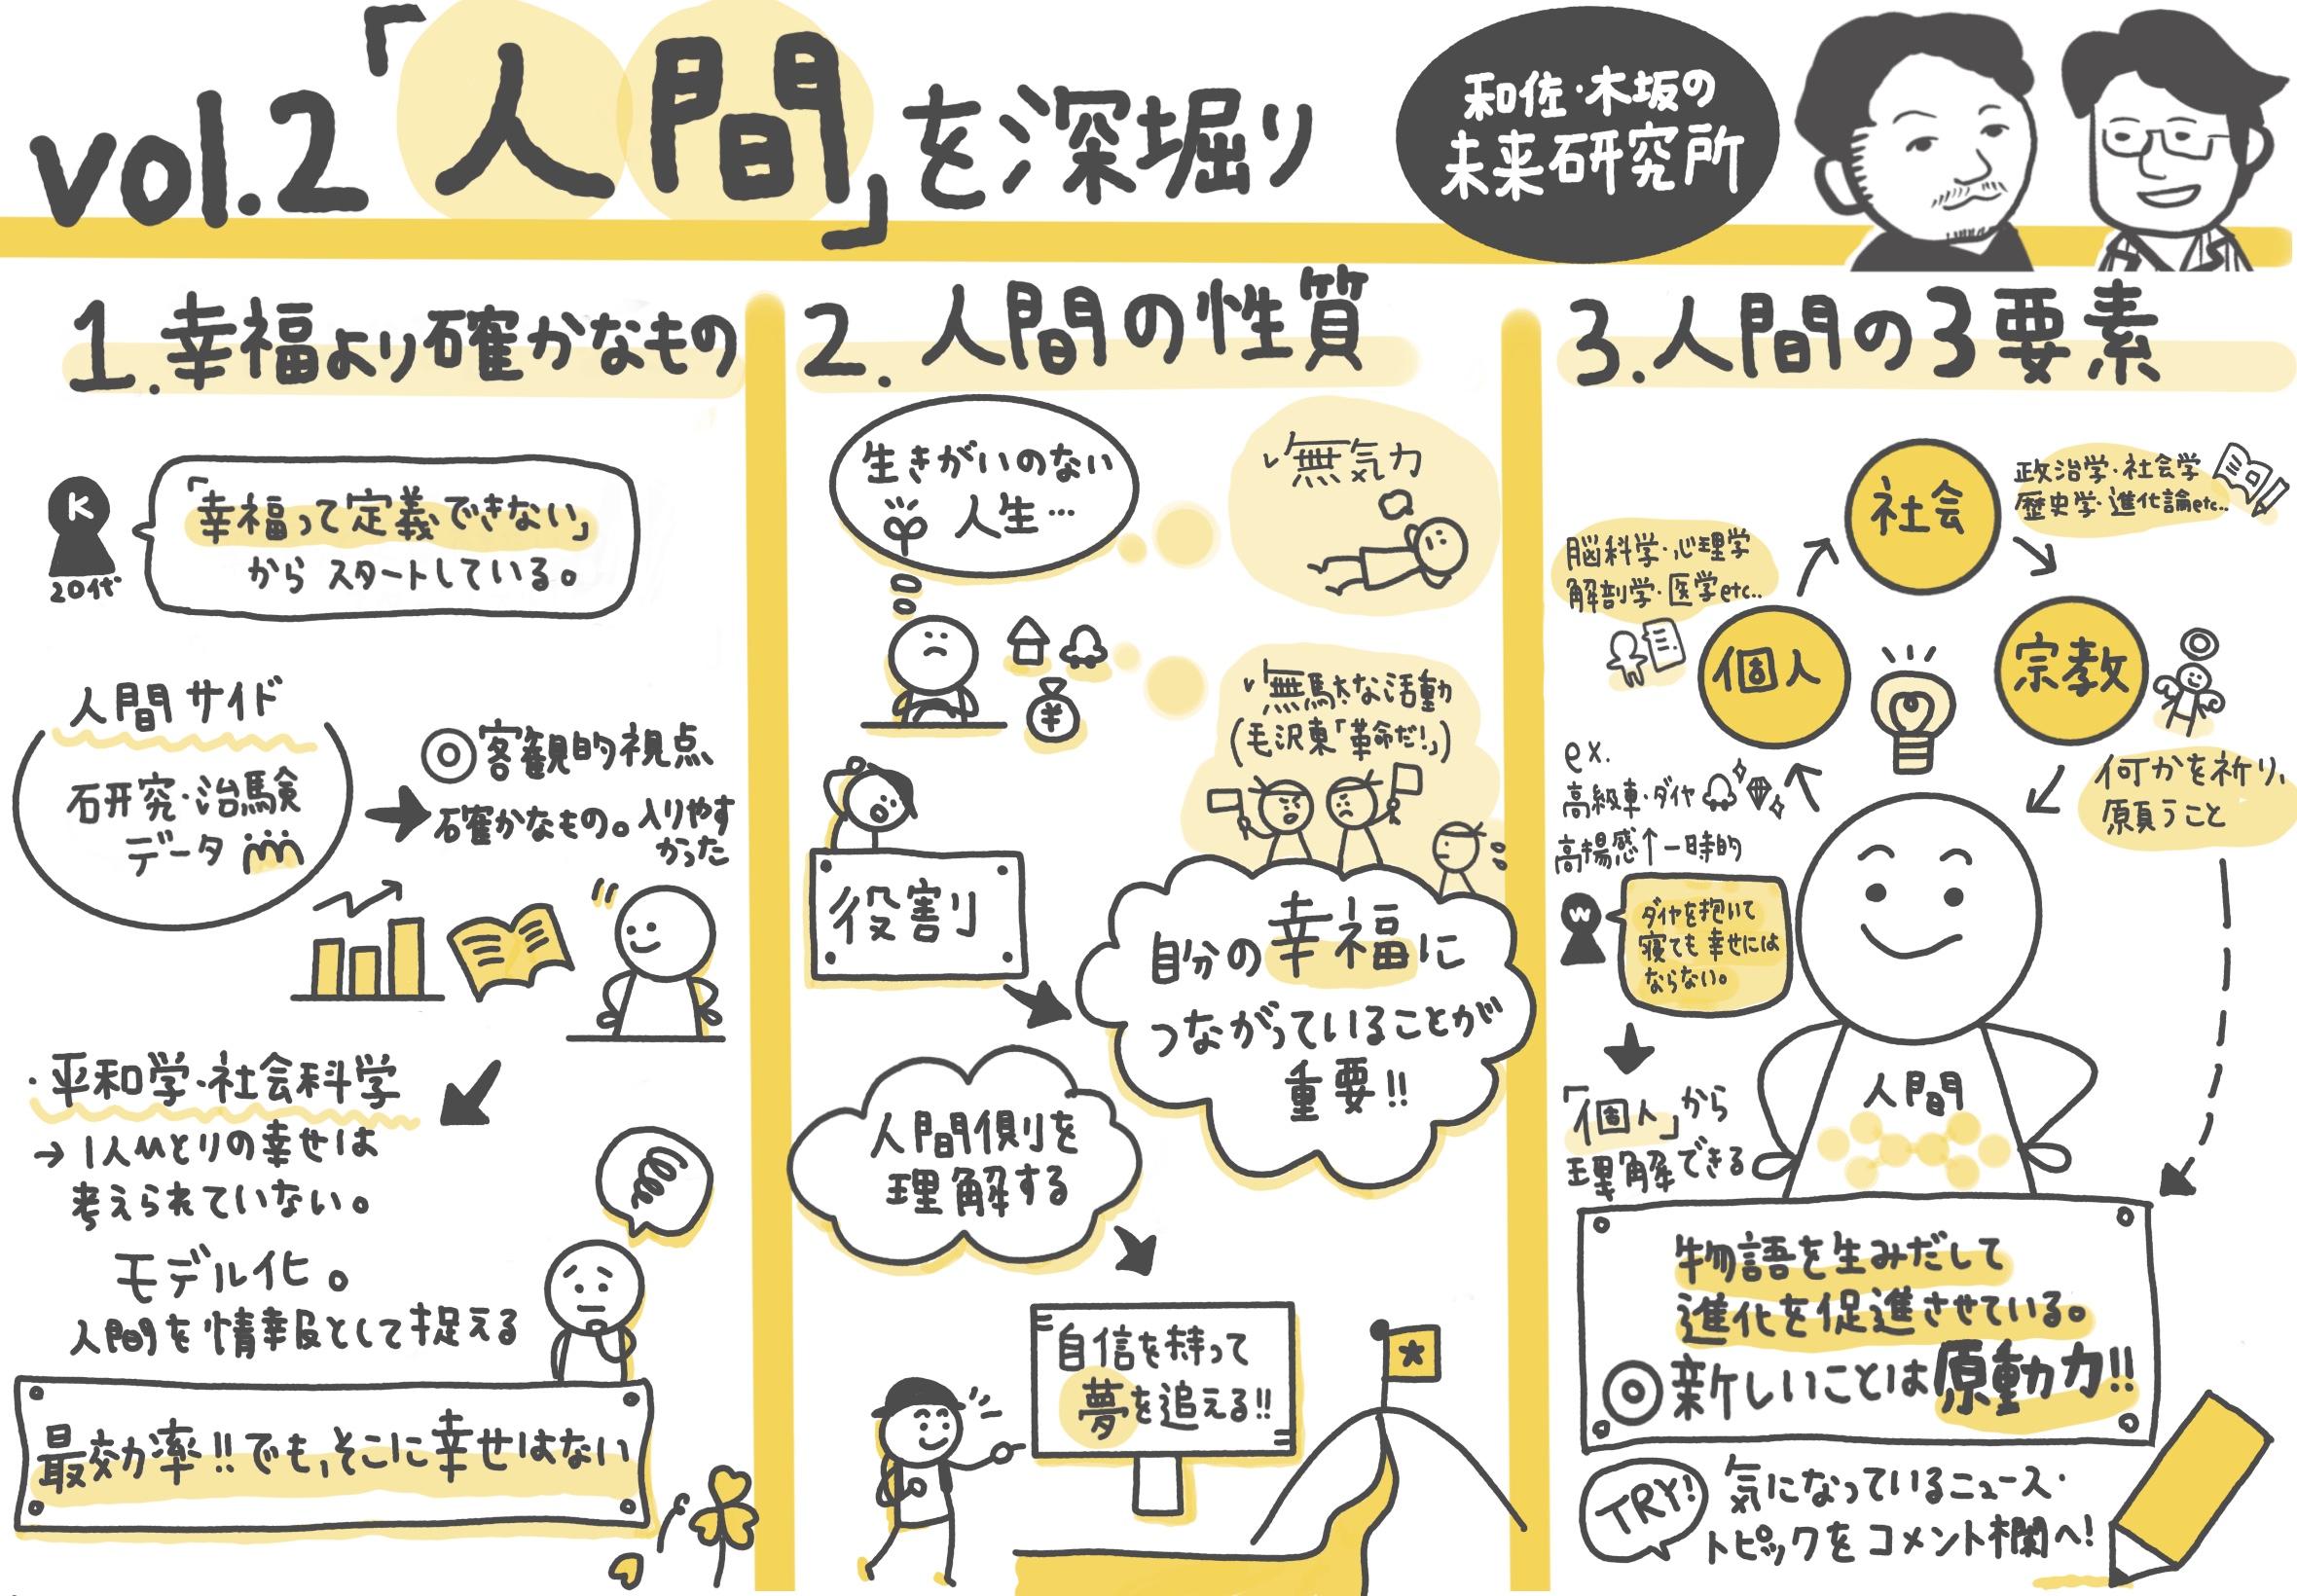 vol.2「人間」を深堀り
和佐・木坂の
未来研究所
1.幸福より確かなもの
K
20代
「幸福って定義できない」
から スタートしている。
人間サイド
研究・治験
データ
◎客観的視点
確かなもの。入りやす
かった
・平和学・社会科学
→1人ひとりの幸せは
考えられていない。
モデル化。
人間を情報として捉える
最効率!!でも、そこに幸せはない
2.人間の性質
生きがいのない
人生…
✓無気力
¥
✓無駄な活動
(毛沢東「革命だ!」)
役割
自分の幸福に
つながっていることが
重要!!
人間側を
理解する
自信を持って
夢を追える!!
3.人間の3要素
社会
政治学・社会学
歴史学・進化論etc..
脳科学・心理学
解剖学・医学etc..
個人
宗教
何かを祈り、
願うこと
ex.
高級車・ダイヤ
高揚感↑一時的
W
ダイヤを抱いて
寝ても幸せには
ならない。
「個人」から
理解できる
人間
物語を生みだして
進化を促進させている。
◎新しいことは原動力!!
TRY!
気になっているニュース・
トピックをコメント欄へ!